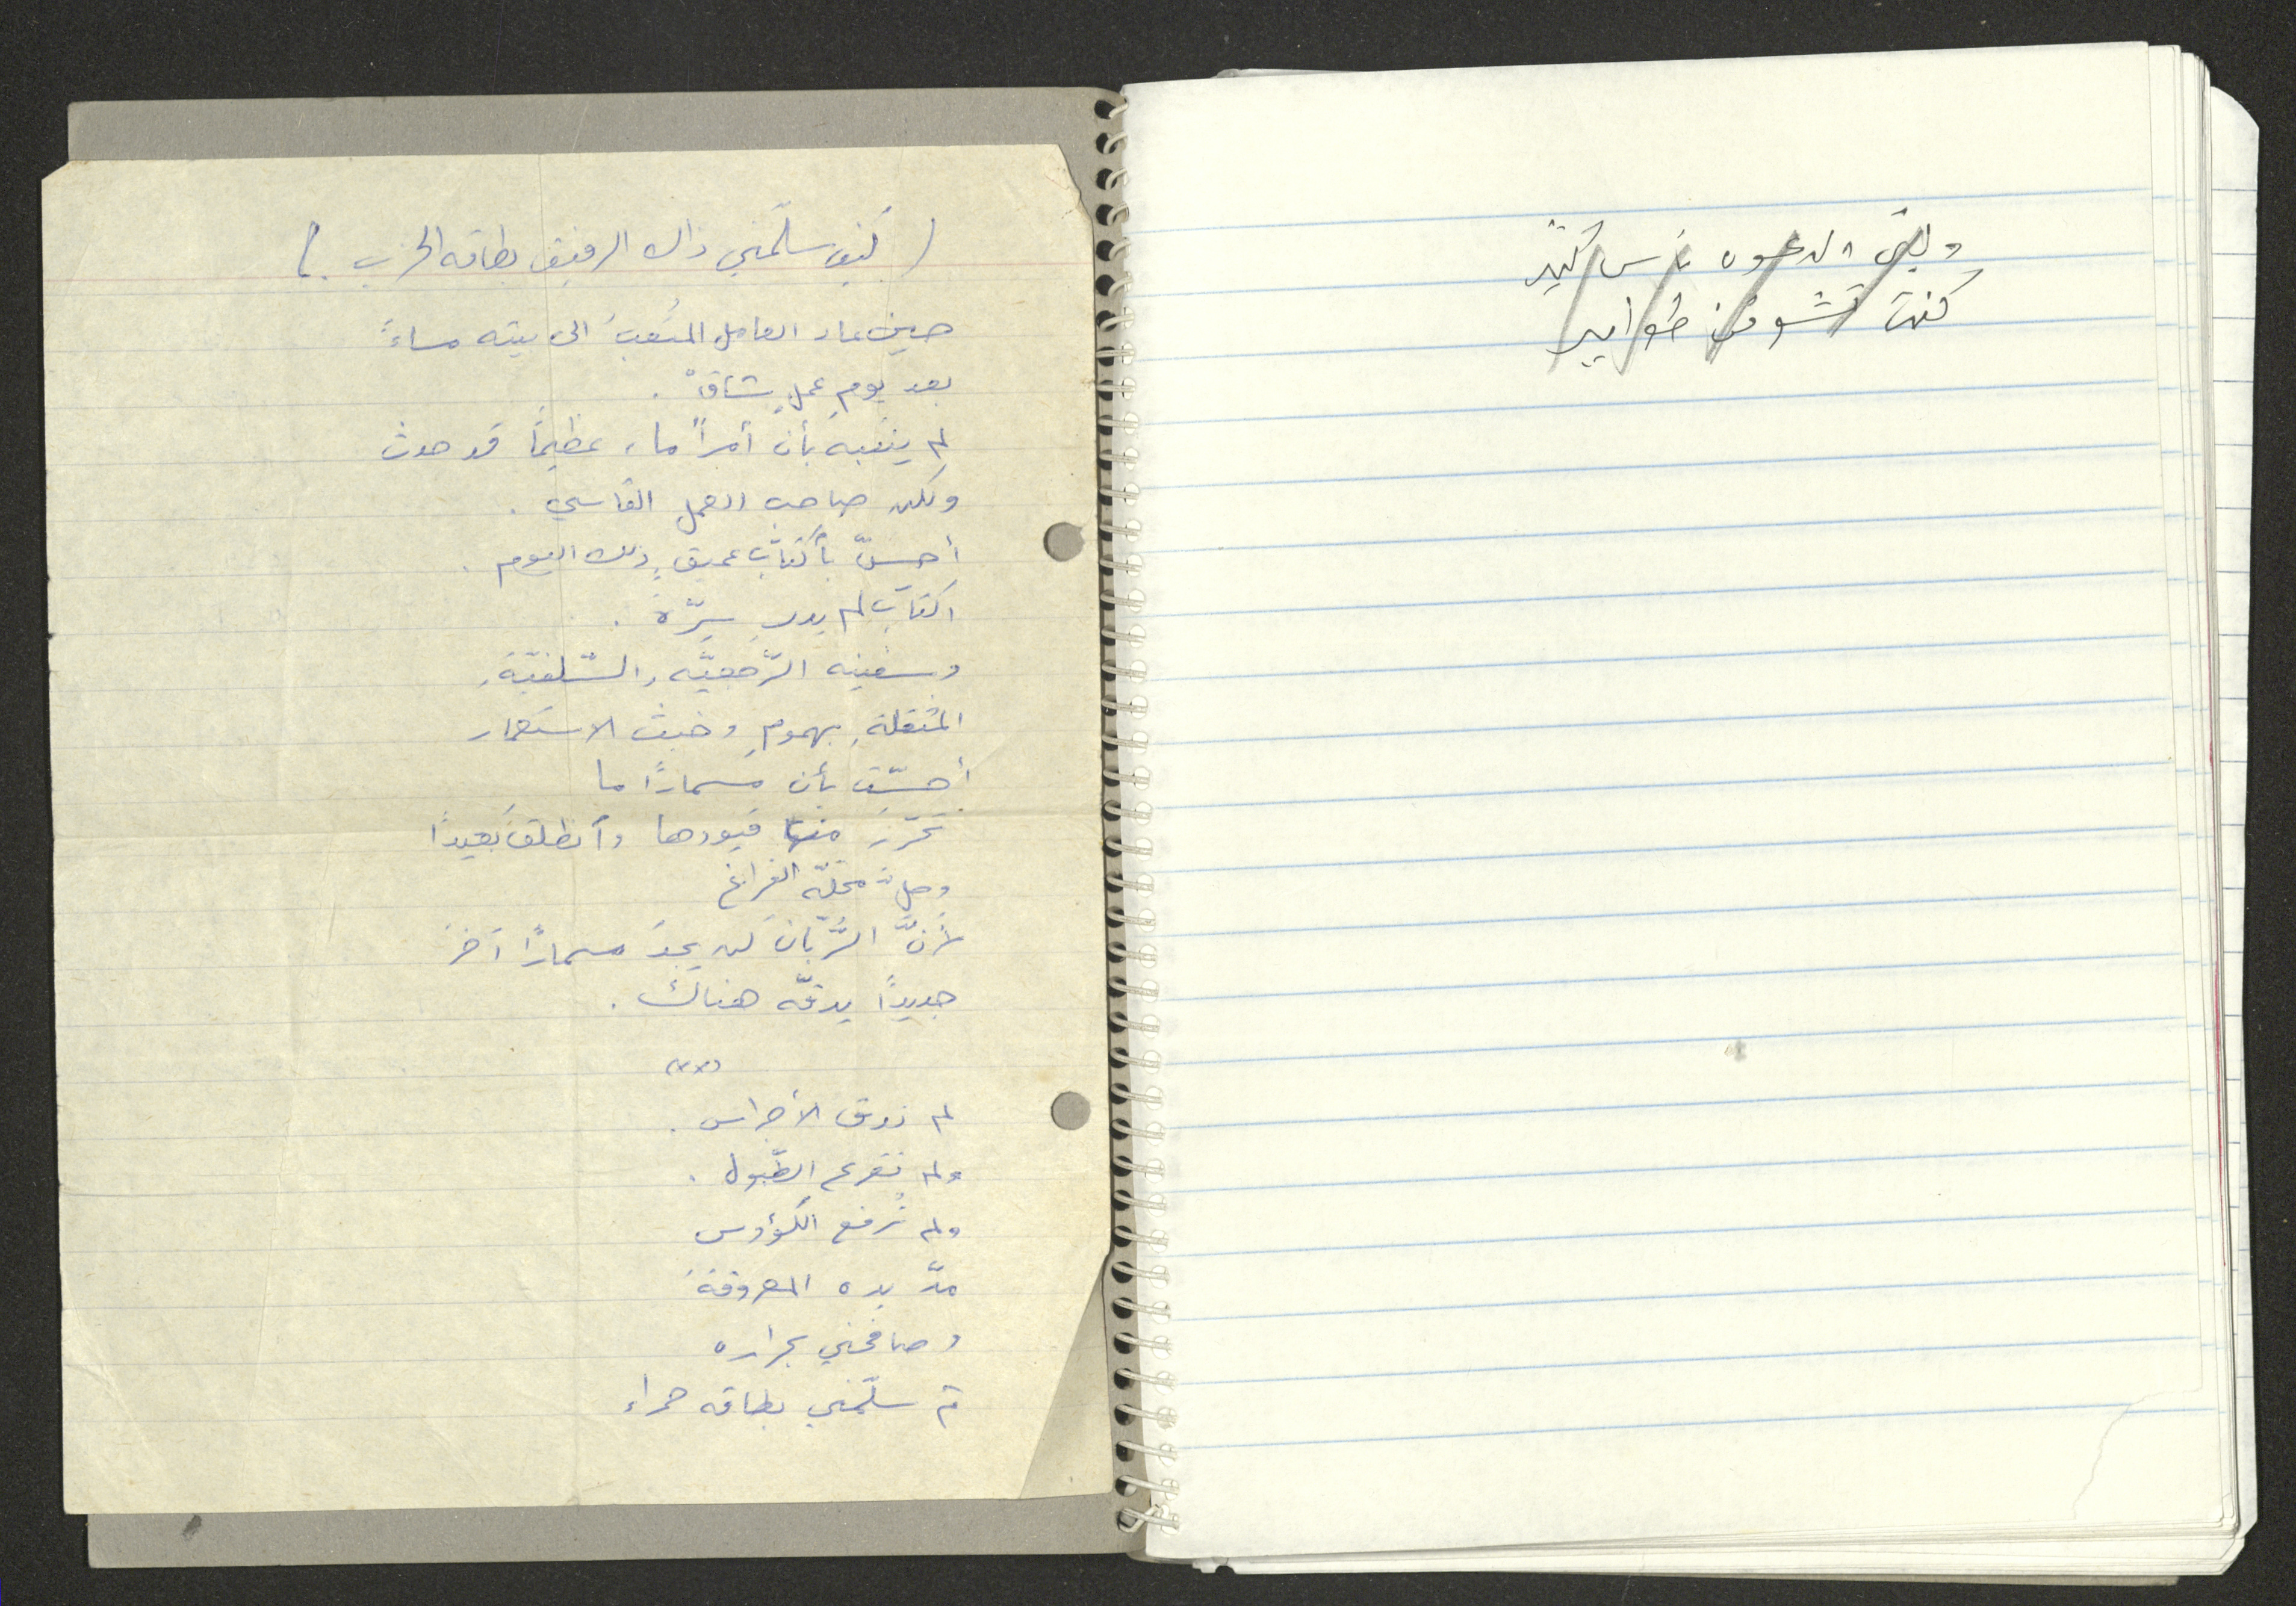 ( كيف سلّمني ذاك الرفيق بطاقه الحزب . )
حين عاد العامل المتعبُ الى بيته مساءً
بعد يومِ عملٍ شاقْ .
لم ينتبه بأن أمراً ما، عظيماً قد حدث
ولكن صاحب العمل القاسي .
أحسّ بأكتآب عميقٍ ذلك اليوم .
اكتآب لم يدرِ سِرّهُ .
وسفينه الرّجعيّه والسّلفيّة
المثقلةِ بهمومِ وخبث الاستعمار
أحسّت بأن مسمارًا ما
تحرّرَ من قيودها وأنطلقَ بعيدًا
وظلَّ محلّه الفراغ
لأنَّ الرُّبّانَ لن يجدَ مسمارًا آخرَ
جديدًا يدقّه هناك .
(xx)
لم ندق الأجراس .
ولم نقرع الطّبول .
ولم نُرفع الكؤوس
مدّ يده المعروقة
وصافحني بحراره
ثم سلّمني بطاقه حمراء
ولبّى الدعوه ناس كتير
كنت تشوف طوابير